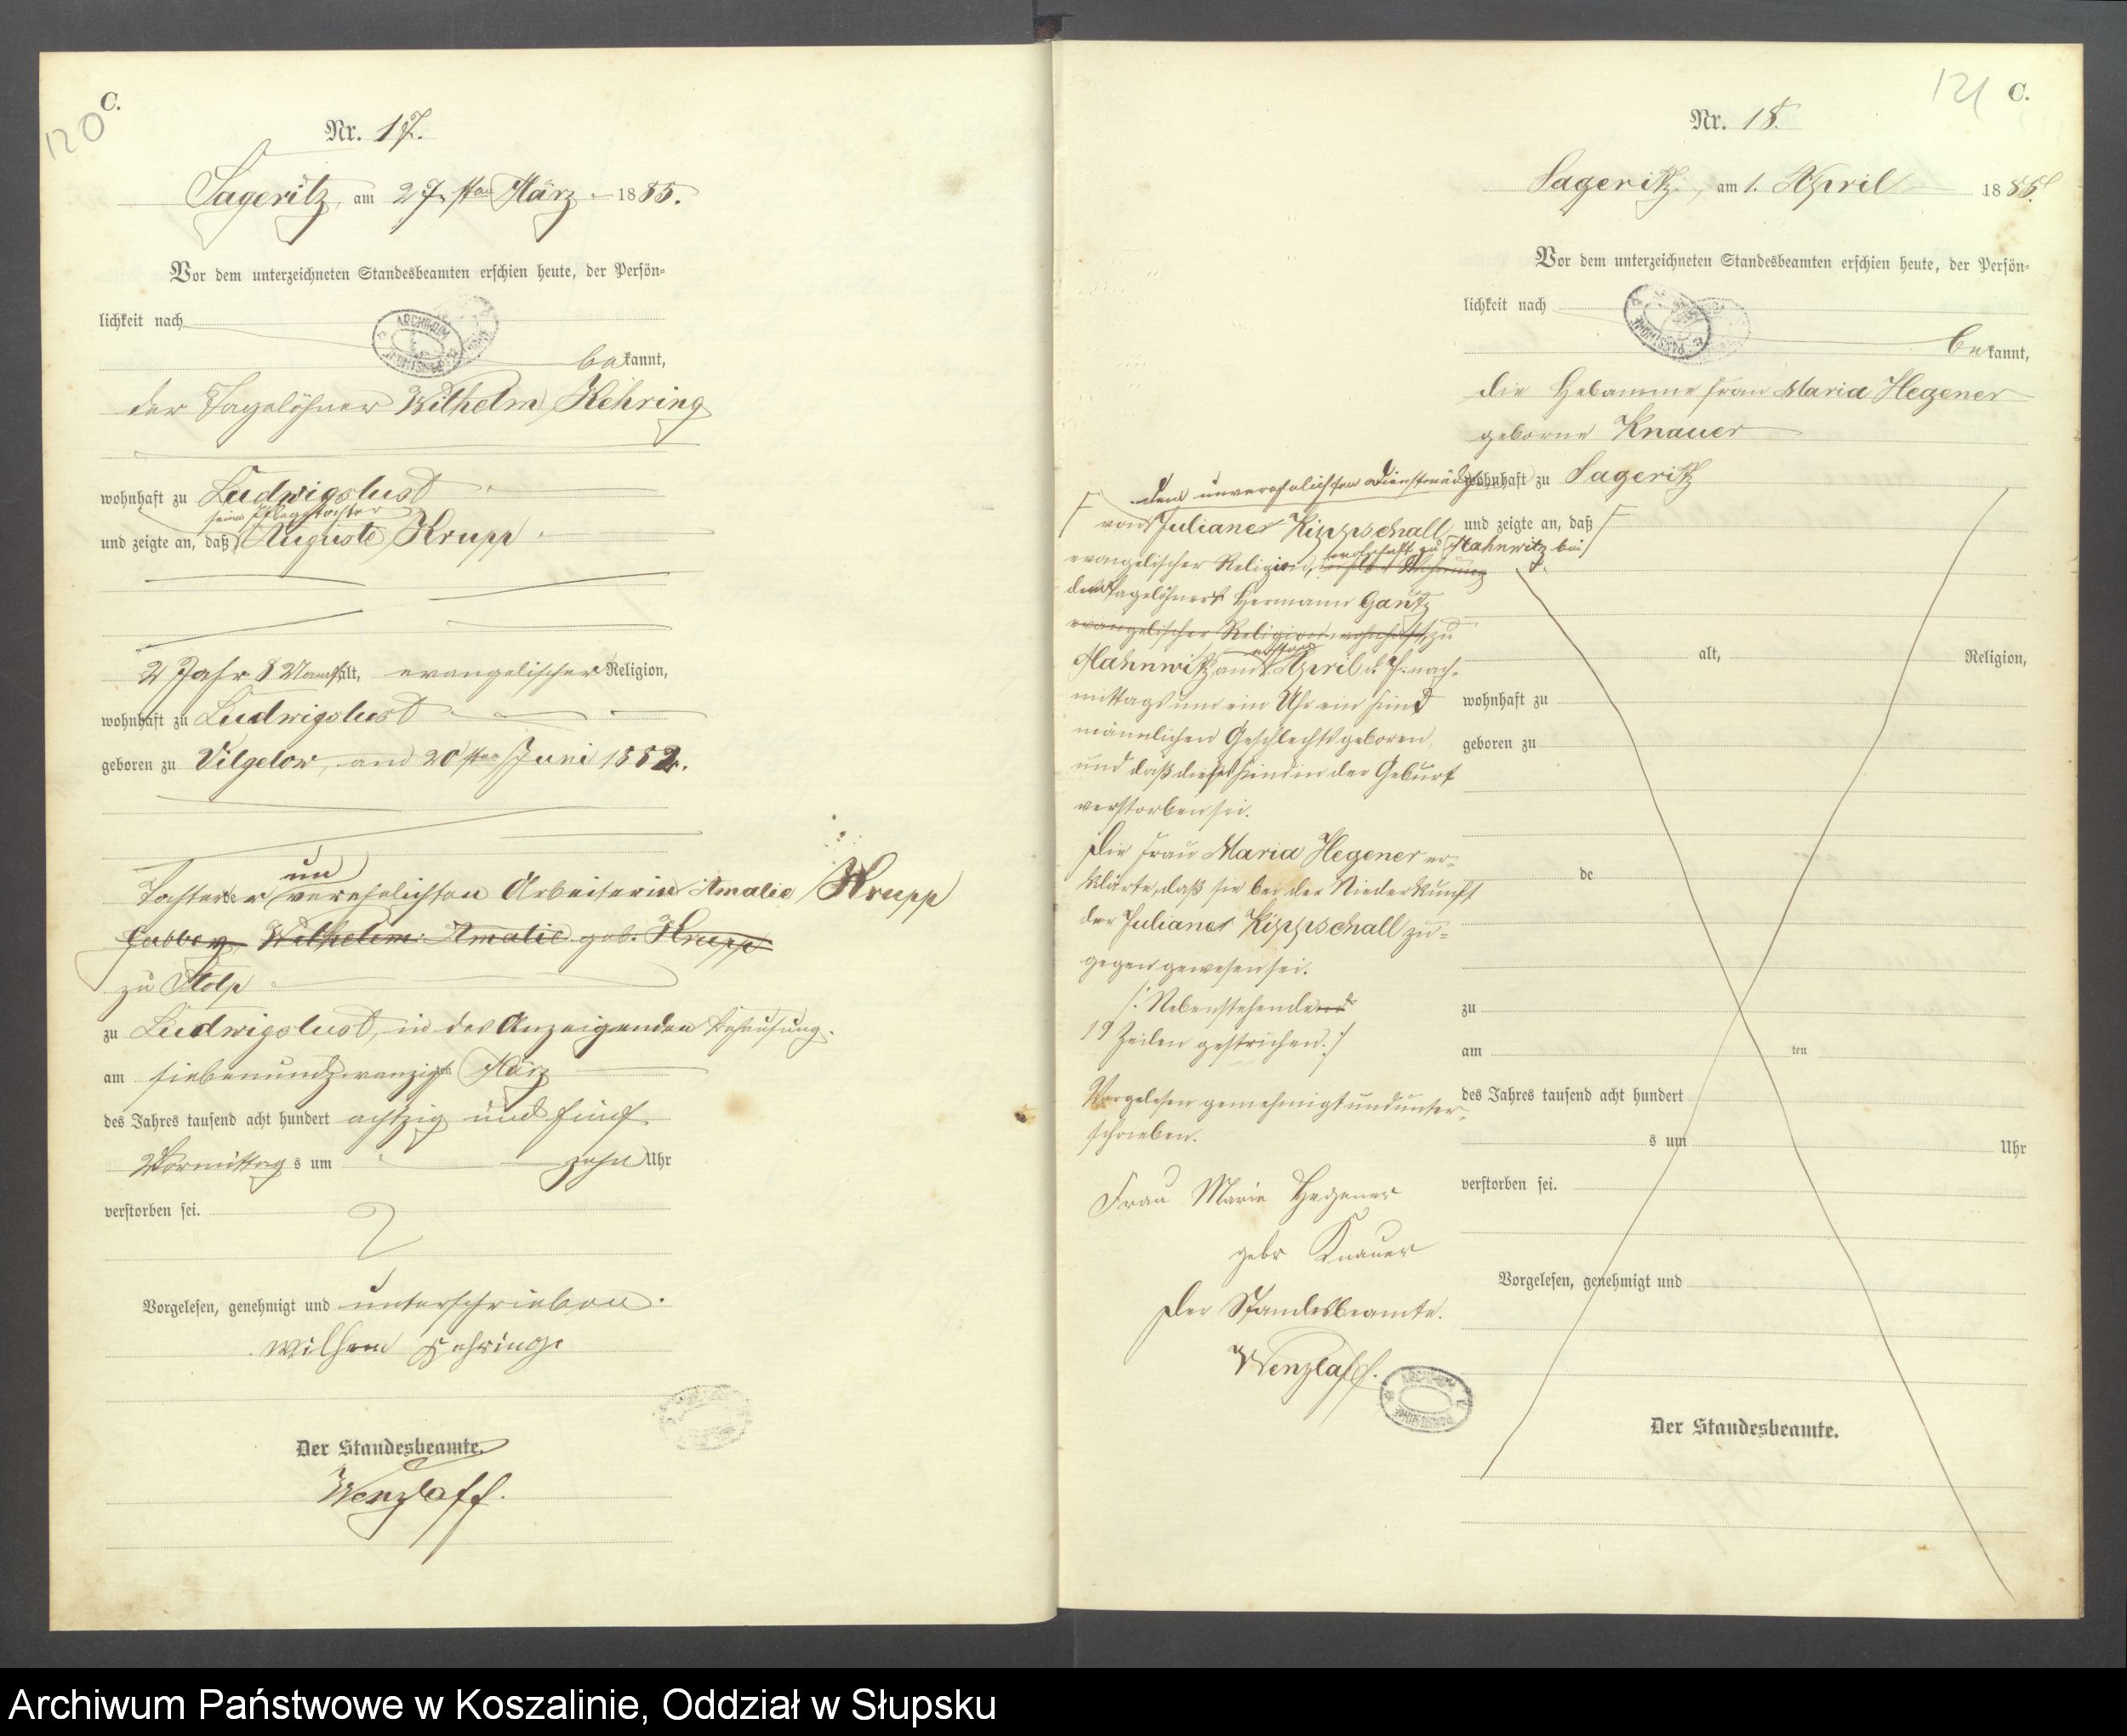 C.
120
Nr. 17.
Sageritz, am 27sten März 1885.
Vor dem unterzeichneten Standesbeamten erschien heute, der Persön=
lichkeit nach
bekannt,
der Tagelöhner Wilhelm Kehring
wohnhaft zu Ludwigslust
seine Pflegetochter
und zeigte an, daß Auguste Krupp
2 Jahr 8 Monat alt, evangelischer Religion,
wohnhaft zu Ludwigslust
geboren zu Vilgelow, am 20sten Juni 1882.
un
Tochter der verehelichten Arbeiterin Amalie Krupp
Wilhelm Amalie geb. Krupp
zu Stolp
zu Ludwigslust, in des Anzeigenden Behausung.
am siebenundzwanzigsten März
des Jahres tausend acht hundert achtzig und fünf
Vormittags um zehn Uhr
verstorben sei.
Vorgelesen, genehmigt und unterschrieben.
Wilhem Kehring
Der Standesbeamte.
Wenzlaff.
121
C.
Nr. 18.
Sageritz, am 1. April 1885.
Vor dem unterzeichneten Standesbeamten erschien heute, der Persön=
lichkeit nach
bekannt,
die Hebamme Frau Maria Hegener
geborne Knauer
wohnhaft zu Sageritz
und zeigte an, daß
dem unverehelichten Dienstmädchen
von Juliane Kippschall
wohnhaft zu Hahnwitz bei
evangelischer Religion,
dem Tagelöhner Hermann Gantz
evangelischer Religion wohnhaft zu
Hahnwitz am ersten April d. J. nach-
mittags um ein Uhr ein Kind
männlichen Geschlechts geboren,
und daß dieses Kind in der Geburt
verstorben sei.
Die Frau Maria Hegener er-
klärte, daß sie bei der Niederkunft
der Juliane Kippschall zu=
gegen gewesen sei.
/: Nebenstehende
19 Zeilen gestrichen. :/
Vorgelesen genehmigt und unter-
schrieben.
Frau Marie Hegener
gebr Knauer
Der Standesbeamte.
Wenzlaff.
alt, Religion,
wohnhaft zu
geboren zu
de
zu
am ten
des Jahres tausend acht hundert
s um Uhr
verstorben sei.
Vorgelesen, genehmigt und
Der Standesbeamte.
Archiwum Państwowe w Koszalinie, Oddział w Słupsku